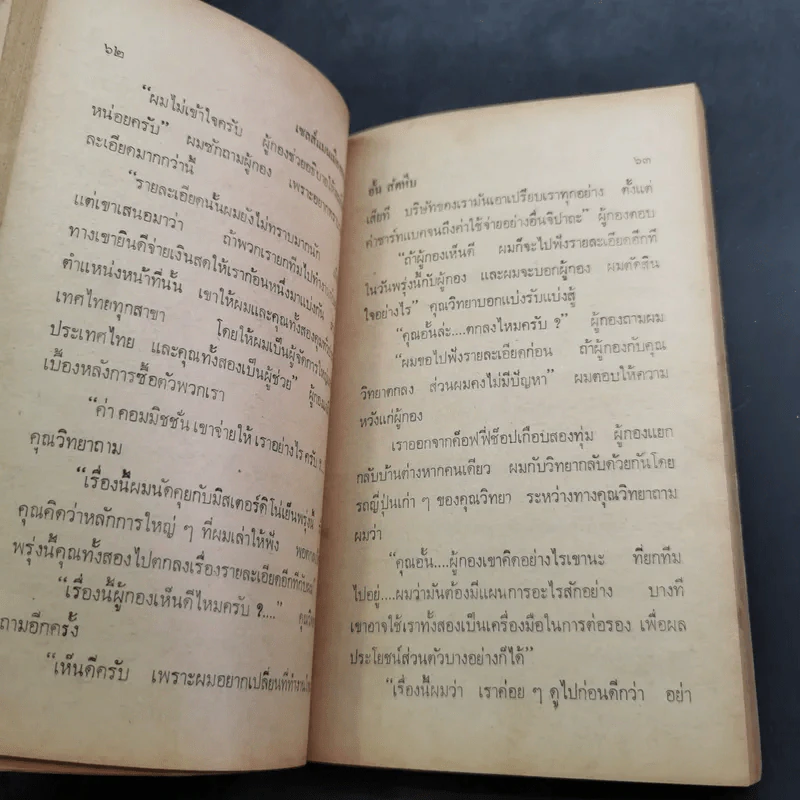 ๖๒
เซลส์แมน
“ผมไม่เข้าใจครับ ผู้กองช่วยอธิบายให้
หน่อยครับ” ผมซักถามผู้กอง เพราะอยากทราบ
ละเอียดมากกว่านี้
“รายละเอียดนั้นผมยังไม่ทราบมากนัก
แต่เขาเสนอมาว่า ถ้าพวกเรายกทีมไปทำงาน
ทางเขายินดีจ่ายเงินสดให้เราก้อนหนึ่งมาแบ่งกัน
ตำแหน่งหน้าที่นั้น เขาให้ผมและคุณทั้งสอง
เทศไทยทุกสาขา โดยให้ผมเป็นผู้จัดการ
ประเทศไทย และคุณทั้งสองเป็นผู้ช่วย”
เบื้องหลังการซื้อตัวพวกเรา
“ค่า คอมมิชชั่น เขาจ่ายให้ เราอย่างไร ครับ ?
คุณวิทยาถาม
“เรื่องนี้ผมนัดคุยกับมิสเตอร์ดิโน่เย็นพรุ่งนี้
คุณคิดว่าหลักการใหญ่ ๆ ที่ผมเล่าให้ฟัง
พรุ่งนี้คุณทั้งสองไปตกลงเรื่องรายละเอียดอีกทีกับผม
“เรื่องนี้ผู้กองเห็นดีไหมครับ ?....”
ถามอีกครั้ง
“เห็นดีครับ เพราะผมอยากเปลี่ยนที่ทำงาน
๖๓
อั๋น สัตหีบ
เสียที บริษัทของเรามันเอาเปรียบเราทุกอย่าง ตั้งแต่
ค่าชาร์ทแบคจนถึงค่าใช้จ่ายอย่างอื่นจิปาถะ” ผู้กองตอบ
“ถ้าผู้กองเห็นดี ผมก็จะไปฟังรายละเอียดอีกที
ในวันพรุ่งนี้กับผู้กอง และผมจะบอกผู้กอง ผมตัดสิน
ใจอย่างไร” คุณวิทยาบอกแบ่งรับแบ่งสู้
“คุณอั๋นล่ะ....ตกลงไหมครับ ?” ผู้กองถามผม
“ผมขอไปฟังรายละเอียดก่อน ถ้าผู้กองกับคุณ
วิทยาตกลง ส่วนผมคงไม่มีปัญหา” ผมตอบให้ความ
หวังแก่ผู้กอง
เราออกจากค๊อฟฟี่ช็อปเกือบสองทุ่ม ผู้กองแยก
กลับบ้านต่างหากคนเดียว ผมกับวิทยากลับด้วยกันโดย
รถญี่ปุ่นเก่า ๆ ของคุณวิทยา ระหว่างทางคุณวิทยาถาม
ผมว่า
“คุณอั๋น....ผู้กองเขาคิดอย่างไรเขานะ ที่ยกทีม
ไปอยู่....ผมว่ามันต้องมีแผนการอะไรสักอย่าง บางที
เขาอาจใช้เราทั้งสองเป็นเครื่องมือในการต่อรอง เพื่อผล
ประโยชน์ส่วนตัวบางอย่างก็ได้”
“เรื่องนี้ผมว่า เราค่อย ๆ ดูไปก่อนดีกว่า อย่า